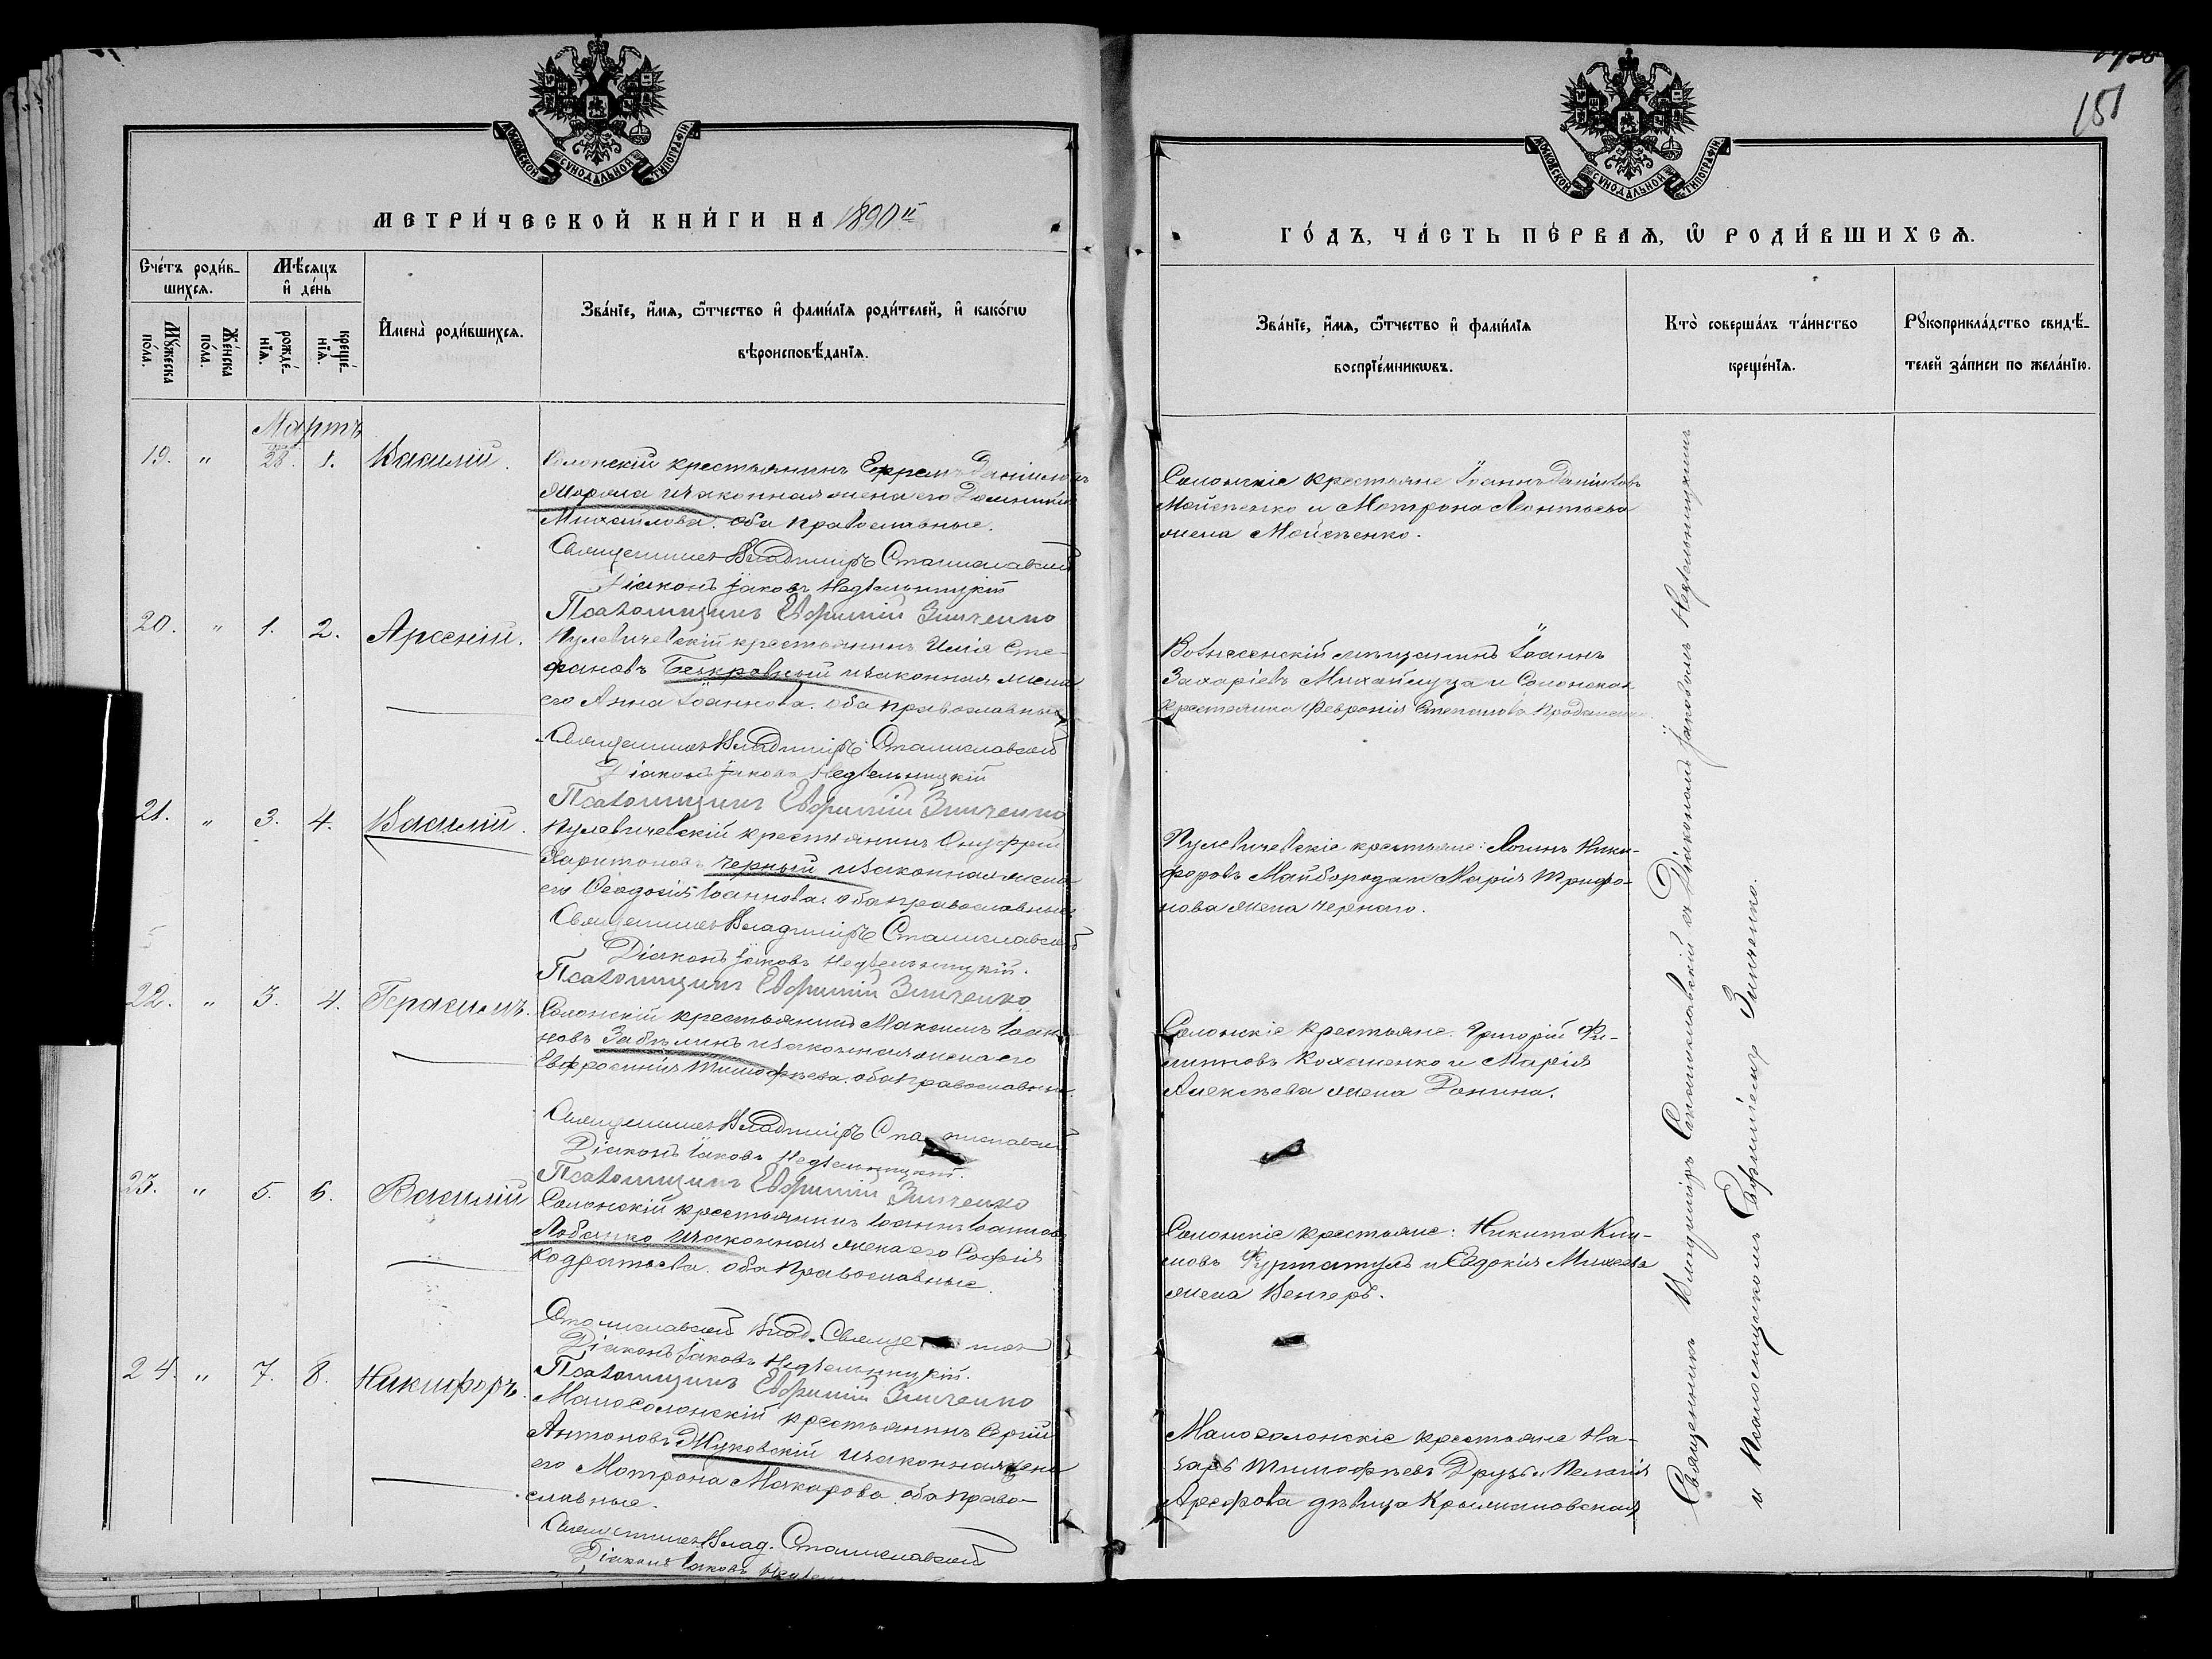 МОСКОВСКОЙ СѴНОДАЛЬНОЙ ТИПОГРАФІИ
МЕТРИ́ЧЕСКОЙ КНИ́ГИ НА 1890й
Сче́тъ роди́в-
шихся.
Мѣ́сяцъ
и҆ де́нь
Мꙋ́жеска
по́ла.
Же́нска
по́ла.
рожде́-
нїѧ.
креще́-
нїѧ.
И҆мена̀ роди́вшихсѧ.
Зва́нїе, и҆́мѧ, ѻ҆́тчество и҆ фами́лїѧ роди́телей, и҆ како́гѡ
вѣроисповѣ́данїѧ.
Мартъ
19. " 28. 1. Василій.
Солонскій крестьянинъ Ефремъ Даніиловъ
и законная жена его Домникія
Михайлова. оба православные.
Священникъ Владиміръ Станиславскій
Діаконъ Іаковъ Недѣльницкій
Псаломщикъ Евфимій Зинченко
20. " 1. 2. Арсеній.
Кулевичевскій крестьянинъ Илія Сте-
фановъ Безкровный и законная жена
его Анна Іоаннова. оба православные
Священникъ Владиміръ Станиславскій
Діаконъ Іаковъ Недѣльницкій
Псаломщикъ Евфимій Зинченко
21. " 3. 4. Василій.
Кулевичевскій крестьянинъ Онуфрій
Харитоновъ Черный и законная жена
его Ѳеодосія Іоаннова. оба православные
Священникъ Владиміръ Станиславскій
Діаконъ Іаковъ Недѣльницкій.
Псаломщикъ Евфимій Зинченко
22. " 3. 4. Герасимъ.
Солонскій крестьянинъ Максимъ Іоан-
новъ Забѣлинъ и законная жена его
Евфросинія Тимофѣева. оба православные.
Священникъ Владиміръ Станиславскій
Діаконъ Іаковъ Недѣльницкій.
Псаломщикъ Евфимій Зинченко
23. " 5. 6. Василій
Солонскій крестьянинъ Іоаннъ Іоанновъ
Лобанко и законная жена его Софія
Кодратьева. оба Православные.
Станиславскій Влад. Священникъ
Діаконъ Іаковъ Недѣльницкій.
Псаломщикъ Евфимій Зинченко
24. " 7. 8. Никифоръ.
Малосолонскій крестьянинъ Сергій
Антоновъ Жуковскій и законная жена
его Мотрона Макарова. оба право-
славные.
Священникъ Влад. Станиславскій
Діаконъ Іаковъ
151
МОСКОВСКОЙ СѴНОДАЛЬНОЙ ТИПОГРАФІИ
ГО́ДЪ, ЧА́СТЬ ПЕ́РВАѦ, Ѡ҆ РОДИ́ВШИХСѦ.
Зва́нїе, и҆́мѧ, ѻ҆́тчество и҆ фами́лїѧ
воспрїе́мникѡвъ.
Кто̀ соверша́лъ та́инство
креще́нїѧ.
Рꙋкоприкла́дство свидѣ́-
телей за́писи по жела́нїю.
Солонскіе крестьяне Іоаннъ Даніиловъ
Мойсеенко и Мотрона Леонтьева
жена Мойсеенко.
Вознесенскій мѣщанинъ Іоаннъ
Захаріевъ Михайлуца и Солонская
крестьянка Февронія Степанова
Кулевичевскіе крестьяне: Логинъ Ники-
форовъ Майборода и Марія Трифо-
нова жена Чернаго.
Солонскіе крестьяне. Григорій Фи-
липповъ Коханенко и Марія
Алексѣева жена Донина.
Солонскіе крестьяне: Никита Кли-
мовъ Фуртатулъ и Евдокія Михеева
жена Венгеръ.
Малосолонскіе крестьяне На-
заръ Тимофѣевъ Друзъ и Пелагія
Арефова дѣвица
Священникъ Владиміръ Станиславскій съ Діакономъ Іаковомъ Недѣльницкимъ
и Псаломщикомъ Евфиміемъ Зинченко.